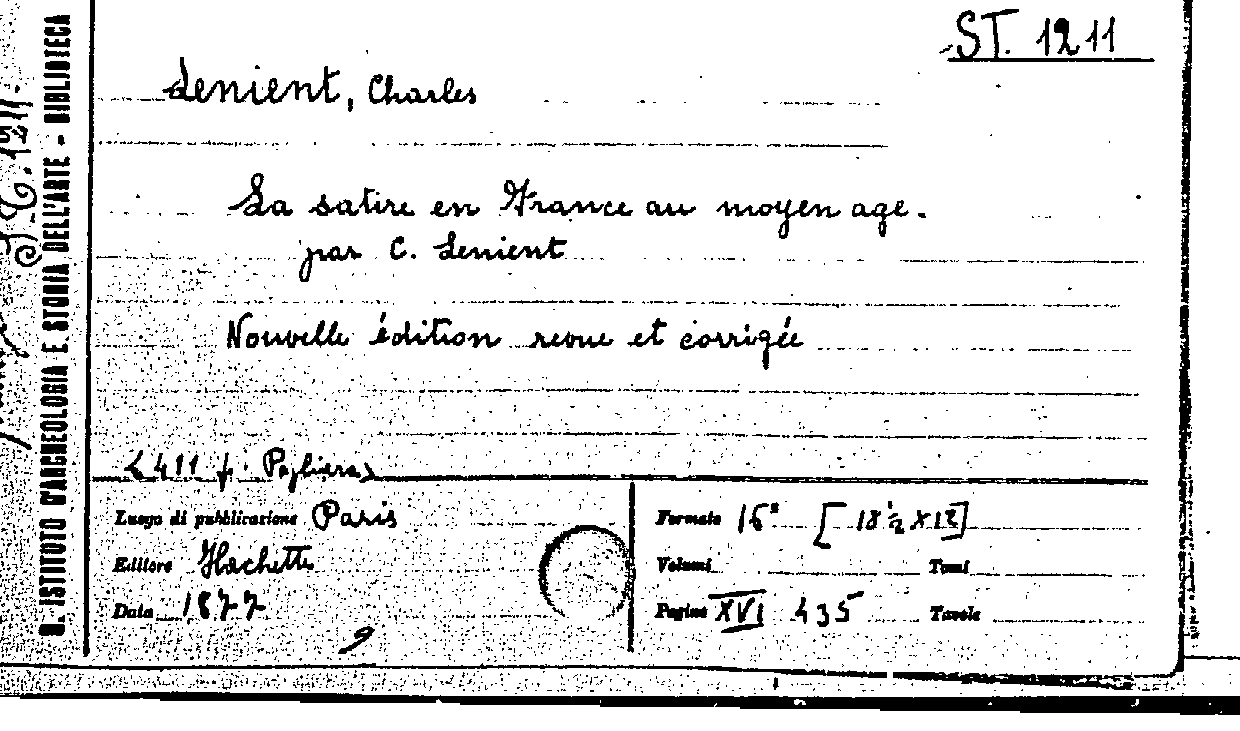 ST. 1211
Lenient, Charles
La satire en France au moyen age.
par C. Lenient
Nouvelle édition revue et corrigée
Luogo di pubblicazione Paris
Editore Hachette
Data 1877
Formato 16° [18½ x 12]
Volumi Tomi
Pagine XVI 435 Tavole
R. ISTITUTO D'ARCHEOLOGIA E STORIA DELL'ARTE - BIBLIOTECA